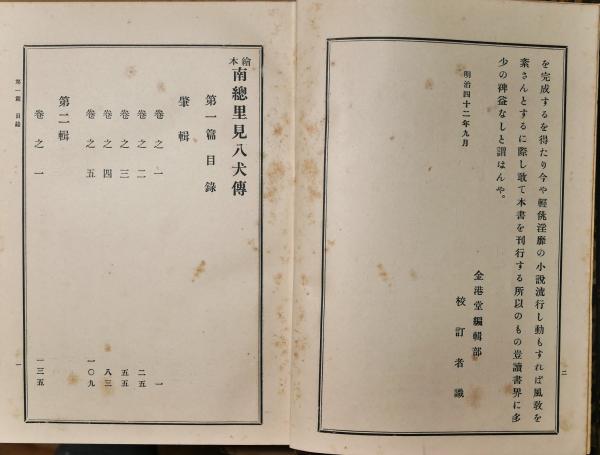 を完成するを得たり今や輕佻淫靡の小說流行し動もすれば風敎を
紊さんとするに際し敢て本書を刊行する所以のもの豈讀書界に多
少の裨益なしと謂はんや。
明治四十二年九月
金港堂編輯部
校訂者識
二
繪本
南總里見八犬傳
第一篇目錄
肇輯
卷之一 一
卷之二 二五
卷之三 五五
卷之四 八三
卷之五 一〇九
第二輯
卷之一 一三五
第一篇 目錄
一